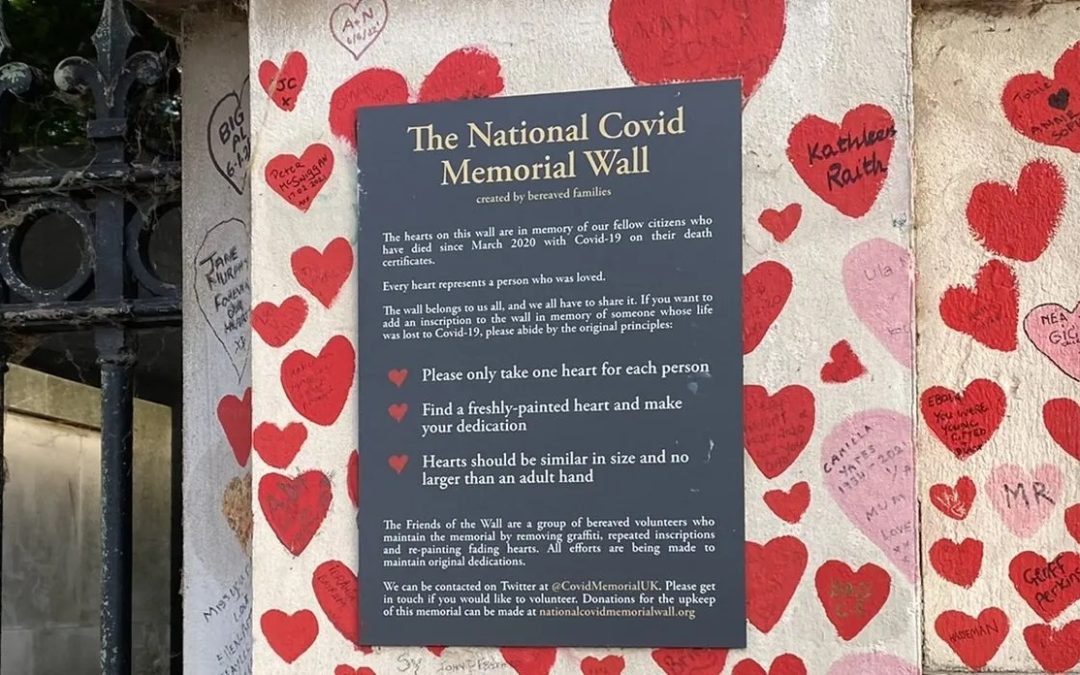 The National Covid
Memorial Wall
created by bereaved families
The hearts on this wall are in memory of our fellow citizens who
have died since March 2020 with Covid-19 on their death
certificates.
Every heart represents a person who was loved.
The wall belongs to us all, and we all have to share it. If you want to
add an inscription to the wall in memory of someone whose life
was lost to Covid-19, please abide by the original principles:
Please only take one heart for each person
Find a freshly-painted heart and make
your dedication
Hearts should be similar in size and no
larger than an adult hand
The Friends of the Wall are a group of bereaved volunteers who
maintain the memorial by removing graffiti, repeated inscriptions
and re-painting fading hearts. All efforts are being made to
maintain original dedications.
We can be contacted on Twitter at @CovidMemorialUK. Please get
in touch if you would like to volunteer. Donations for the upkeep
of this memorial can be made at nationalcovidmemorialwall.org
A+N
JC
x
BIG
AL
Peter
McSwiggan
JANE
MURPHY
FOREVER
OUR
NANNY
EDNA
Kathleen
Raith
ANNIE
Ula
CAMILLA
YATES
MUM
LOVE
EBONY
YOU WERE
YOUNG
GIFTED
MR
Geoff
Perkins
HASEMAN
MISS YOU